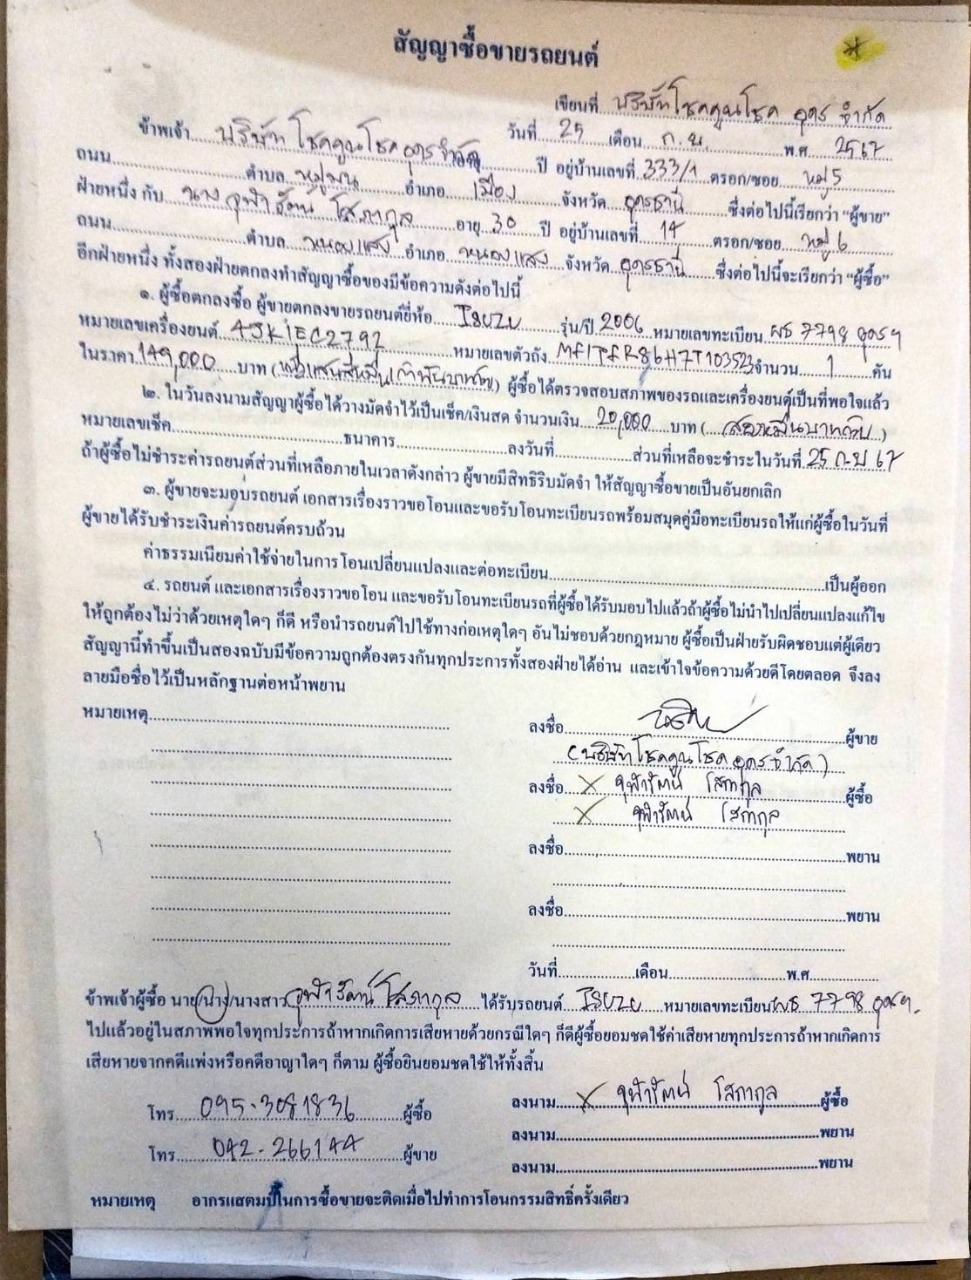 สัญญาซื้อขายรถยนต์
เขียนที่ บริษัท โชคคูนโชค อุดร จำกัด
วันที่ 25 เดือน ก.ย. พ.ศ. 2567
ข้าพเจ้า บริษัท โชคคูนโชค อุดร จำกัด ปี อยู่บ้านเลขที่ 333/1 ตรอก/ซอย หมู่ 5
ถนน ตำบล หมูม่น อำเภอ เมือง จังหวัด อุดรธานี ซึ่งต่อไปนี้เรียกว่า "ผู้ขาย"
ฝ่ายหนึ่ง กับ นาง จุฬารัตน์ โสภากุล อายุ 30 ปี อยู่บ้านเลขที่ 14 ตรอก/ซอย หมู่ 6
ถนน ตำบล หนองแสง อำเภอ หนองแสง จังหวัด อุดรธานี ซึ่งต่อไปนี้จะเรียกว่า "ผู้ซื้อ"
อีกฝ่ายหนึ่ง ทั้งสองฝ่ายตกลงทำสัญญาซื้อของมีข้อความดังต่อไปนี้
๑. ผู้ซื้อตกลงซื้อ ผู้ขายตกลงขายรถยนต์ยี่ห้อ ISUZU รุ่น/ปี 2006 หมายเลขทะเบียน ผธ 7798 อุดรฯ
หมายเลขเครื่องยนต์ 4JK1EC2792 หมายเลขตัวถัง MP1TFR86H7T103523 จำนวน 1 คัน
ในราคา 149,000 บาท (หนึ่งแสนสี่หมื่นเก้าพันบาทถ้วน) ผู้ซื้อได้ตรวจสอบสภาพของรถและเครื่องยนต์เป็นที่พอใจแล้ว
๒. ในวันลงนามสัญญาผู้ซื้อได้วางมัดจำไว้เป็นเช็ค/เงินสด จำนวนเงิน 20,000 บาท (สองหมื่นบาทถ้วน)
หมายเลขเช็ค ธนาคาร ลงวันที่ ส่วนที่เหลือจะชำระในวันที่ 25 ก.ย 67
ถ้าผู้ซื้อไม่ชำระค่ารถยนต์ส่วนที่เหลือภายในเวลาดังกล่าว ผู้ขายมีสิทธิริบมัดจำ ให้สัญญาซื้อขายเป็นอันยกเลิก
๓. ผู้ขายจะมอบรถยนต์ เอกสารเรื่องราวขอโอนและขอรับโอนทะเบียนรถพร้อมสมุดคู่มือทะเบียนรถให้แก่ผู้ซื้อในวันที่
ผู้ขายได้รับชำระเงินค่ารถยนต์ครบถ้วน
ค่าธรรมเนียมค่าใช้จ่ายในการโอนเปลี่ยนแปลงและต่อทะเบียน เป็นผู้ออก
๔. รถยนต์ และเอกสารเรื่องราวขอโอน และขอรับโอนทะเบียนรถที่ผู้ซื้อได้รับมอบไปแล้วถ้าผู้ซื้อไม่นำไปเปลี่ยนแปลงแก้ไข
ให้ถูกต้องไม่ว่าด้วยเหตุใดๆ ก็ดี หรือนำรถยนต์ไปใช้ทางก่อเหตุใดๆ อันไม่ชอบด้วยกฎหมาย ผู้ซื้อเป็นฝ่ายรับผิดชอบแต่ผู้เดียว
สัญญานี้ทำขึ้นเป็นสองฉบับมีข้อความถูกต้องตรงกันทุกประการทั้งสองฝ่ายได้อ่าน และเข้าใจข้อความด้วยดีโดยตลอด จึงลง
ลายมือชื่อไว้เป็นหลักฐานต่อหน้าพยาน
หมายเหตุ
ลงชื่อ ผู้ขาย
(บริษัท โชคคูนโชค อุดร จำกัด)
ลงชื่อ X จุฬารัตน์ โสภากุล ผู้ซื้อ
X จุฬารัตน์ โสภากุล
ลงชื่อ พยาน
ลงชื่อ พยาน
วันที่ เดือน พ.ศ.
ข้าพเจ้าผู้ซื้อ นาย/นาง/นางสาว จุฬารัตน์ โสภากุล ได้รับรถยนต์ ISUZU หมายเลขทะเบียน ผธ 7798 อุดรฯ
ไปแล้วอยู่ในสภาพพอใจทุกประการถ้าหากเกิดการเสียหายด้วยกรณีใดๆ ก็ดีผู้ซื้อยอมชดใช้ค่าเสียหายทุกประการถ้าหากเกิดการ
เสียหายจากคดีแพ่งหรือคดีอาญาใดๆ ก็ตาม ผู้ซื้อยินยอมชดใช้ให้ทั้งสิ้น
โทร 095-3081836 ผู้ซื้อ
โทร 042-266144 ผู้ขาย
ลงนาม X จุฬารัตน์ โสภากุล ผู้ซื้อ
ลงนาม พยาน
ลงนาม พยาน
หมายเหตุ อากรแสตมป์ในการซื้อขายจะติดเมื่อไปทำการโอนกรรมสิทธิ์ครั้งเดียว